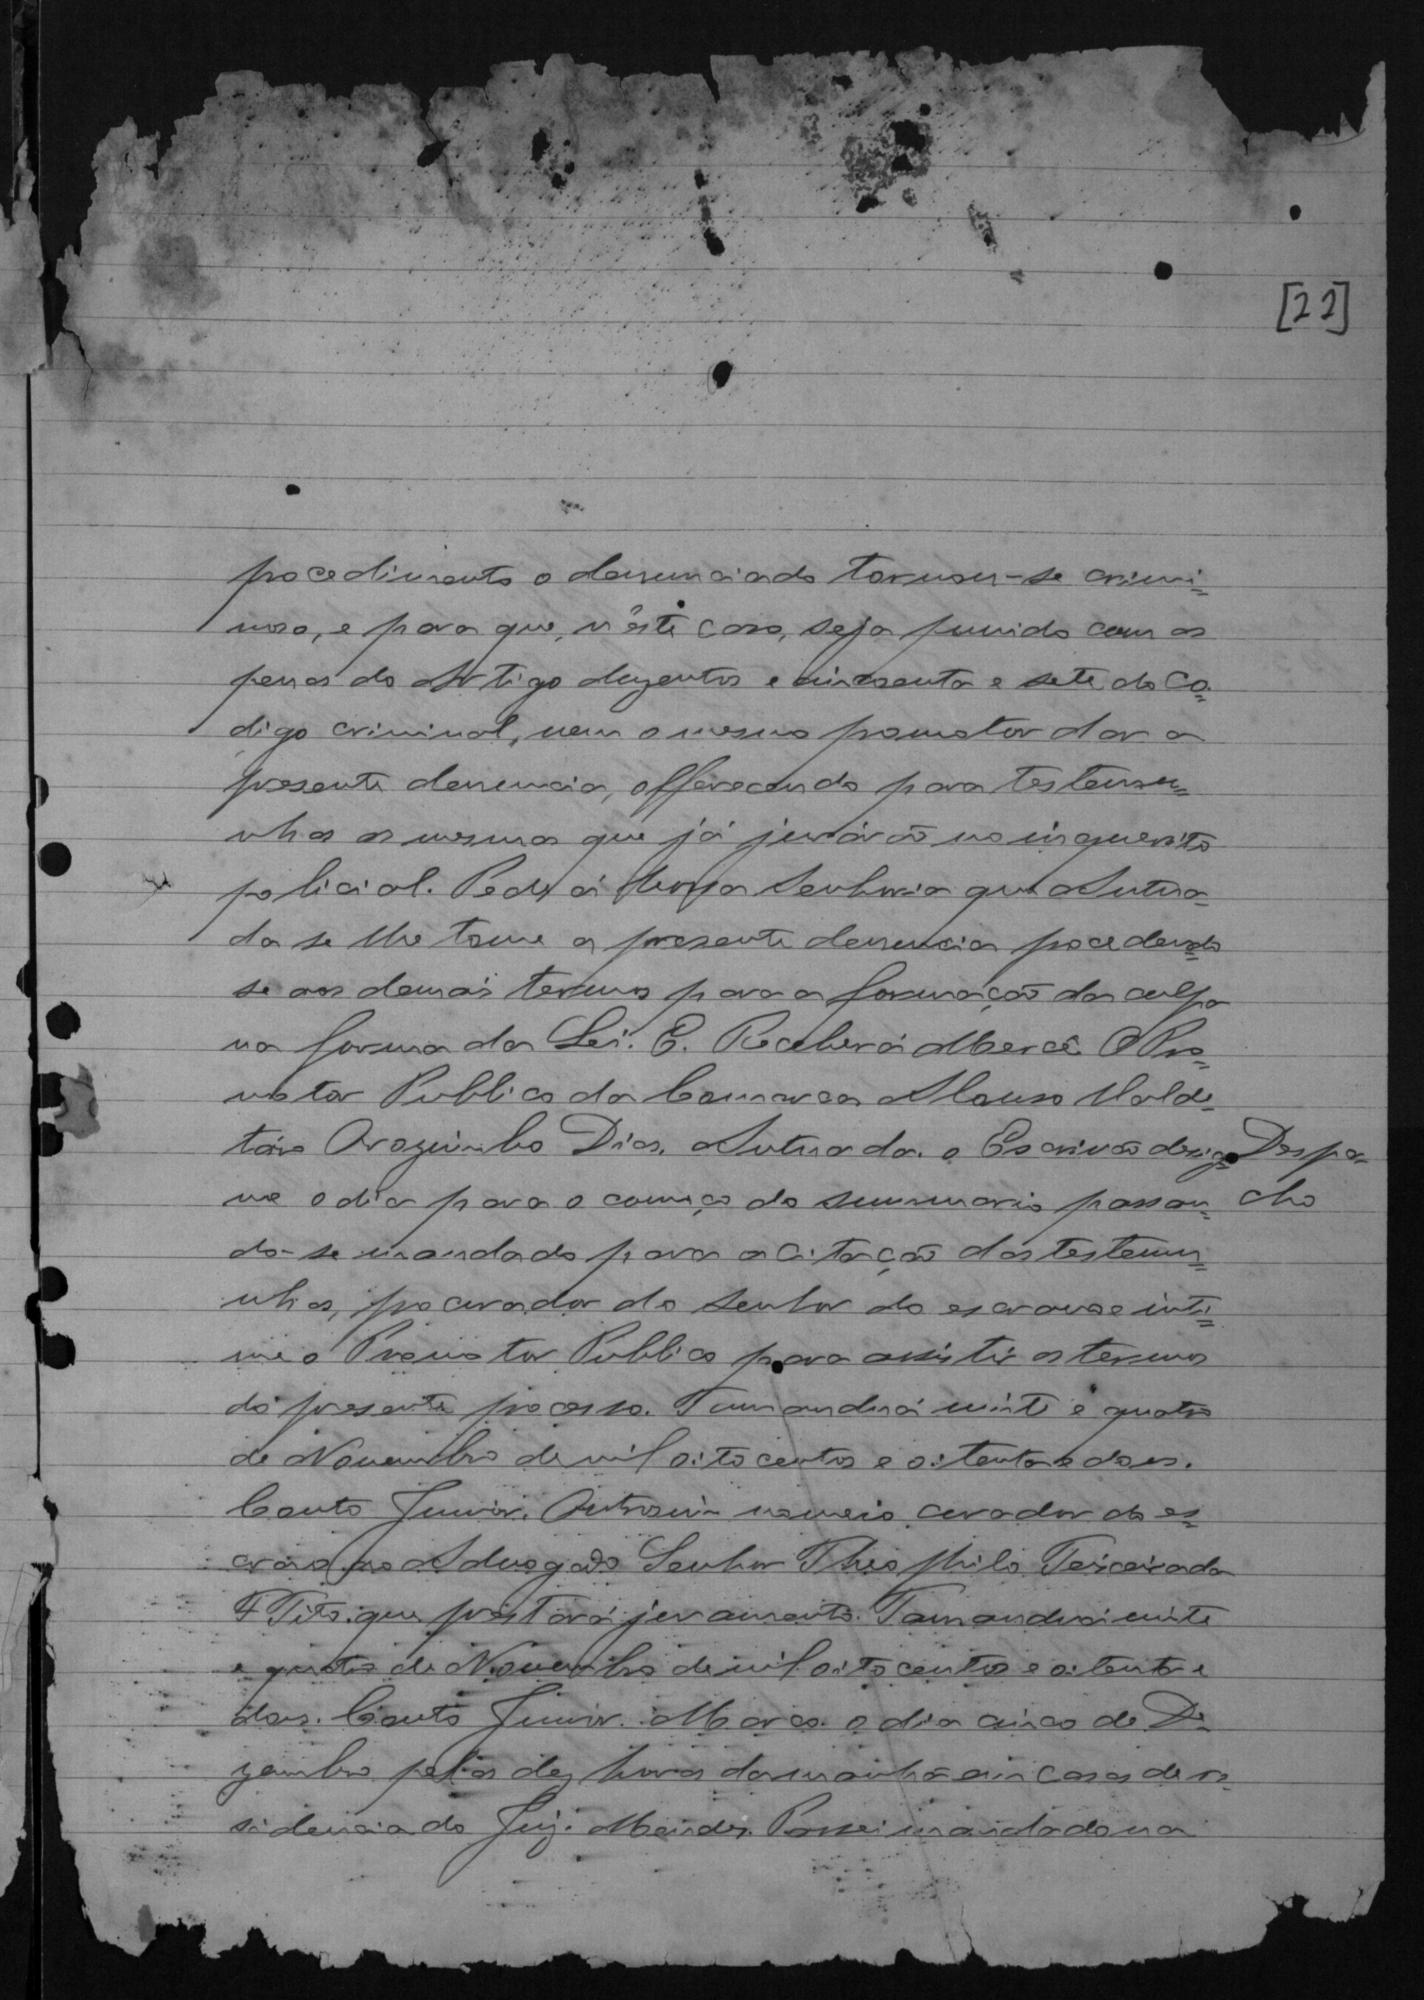 [22]
procedimento o denunciado tornou-se crimi=
noso, e para que, n'êste caso, seja punido com as
penas do Artigo duzentos e cincoenta e sete do Co=
digo criminal, vem o mesmo promotor dar a
presente denuncia, offerecendo para testemu=
nhas as mesmas que já jurárão no inquerito
policial. Pede á Vossa Senhoria que Autua=
da se lhe tome a presente denuncia procedendo
se aos demais termos para a formação da culpa
na forma da Lei. E. Receberá Mercê. O Pro=
motor Publico da Comarca Alonso
Dias. Autuada. o Escrivão desig=
Despa=
ne o dia para o começo do summario passan=
cho
do-se mandado para a citação das testemu=
nhas, procurador do senhor do escravo e inti=
me o Promotor Publico para assistir os termos
do presente processo. Tamanduá vinte e quatro
de Novembro de mil oito centos e oitenta e does.
Couto Junior. Outrosim nomeio curador do es=
cravo ao Advogado Senhor Theophilo Teixeira da
que prestará juramento. Tamanduá vinte
e quatro de Novembro de mil oito centos e oitenta e
does. Couto Junior. Marco o dia cinco de De=
zembro pelas dez horas da manhã em casas de re=
sidencia do Juiz. Mendes. Passei mandado na